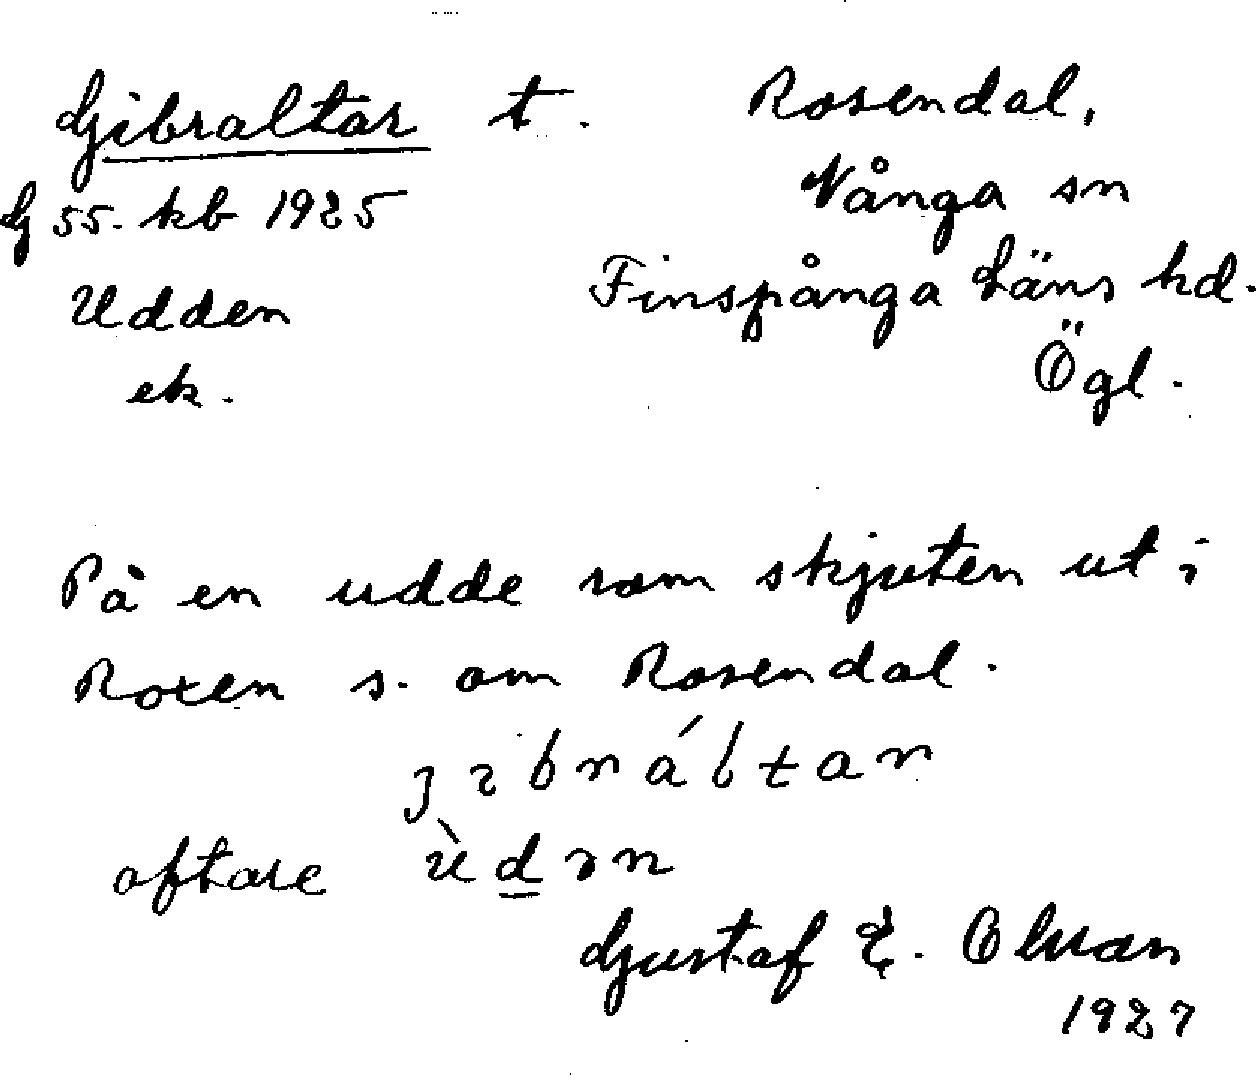 Gibraltar t. Rosendal,
G 55. kb 1925 Vånga sn
Udden Finspånga läns hd.
ek. Ögl.
På en udde som skjuten ut i
Roxen s. om Rosendal.
jɩbráltar
oftare ùdən
Gustaf E. Olsson
1927